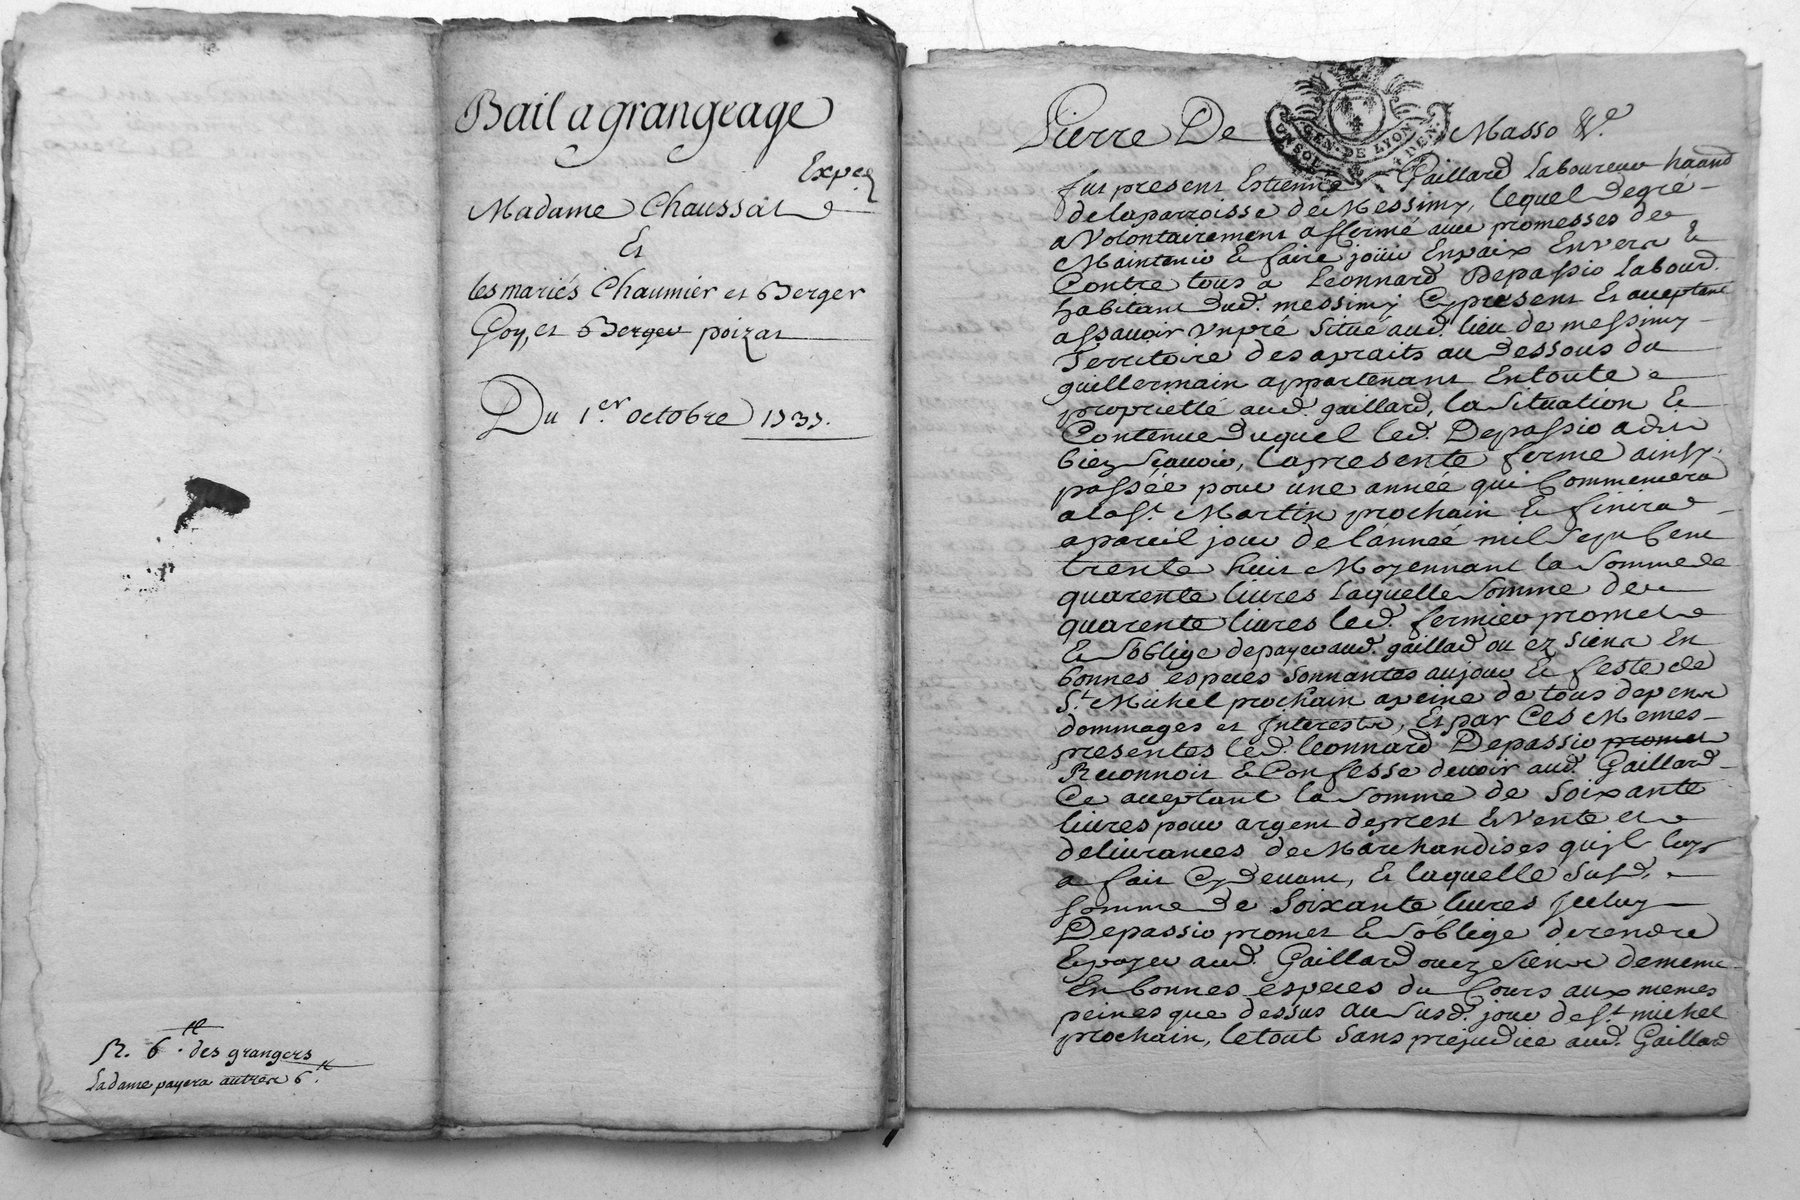 Bail a grangeage
Exp.ée
Madame Chaussat
Et
les mariés Chaumier et Berger
Goy, et Berger poizat
Du 1.er octobre 1737.
R. 6.tt des grangers
Ladame payera autres 6.tt
Pierre De Masso &c.
GEN. DE LYON
UN SOL 4 DEN.
fut present Estienne Gaillard Laboureur
de la parroisse de Messimy, lequel de gré
a Volontairement affermé avec promesses de
Maintenir & faire joüir En paix Envers &
Contre tous a Leonnard Depassio Labour.
habitant dud. messimy Cy present Et acceptant
assavoir Un pré Situé aud. lieu de messimy
Territoire des apraits au dessous du
guillermain appartenant En toute
proprietté aud. gaillard, la Situation &
Contenue duquel led. Depassio a dit
bien Scavoir, la presente ferme ainsy
passée pour une année qui Commencera
a la St. Martin prochain & finira
a pareil jour de l'année mil Sept Cent
trente huit Moyennant la Somme de
quarente livres Laquelle Somme de
quarente livres led. fermier promet
& S'oblige de payer aud. gaillard ou ez Siens En
bonnes especes Sonnantes au jour & feste de
St. Michel prochain a peine de tous depens
dommages et Interests, Et par Ces Memes
presentes led. leonnard Depassio promet
Reconnoit & Confesse devoir aud. Gaillard
Ce acceptant la Somme de Soixante
livres pour argent de prest & Vente et
delivrances de Marchandises qu'il luy
a fait Cy devant, Et laquelle Susd.
Somme de Soixante livres Jceluy
Depassio promet & S'oblige de rendre
& payer aud. Gaillard ou ez Siens de meme
En bonnes especes du Cours aux memes
peines que dessus au Susd. jour de St. michel
prochain, le tout Sans prejudice aud. Gaillard